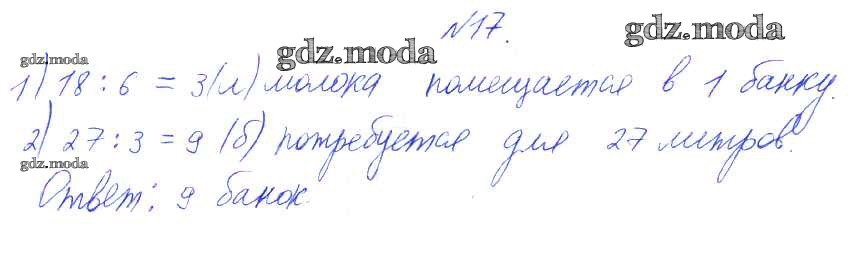 №17.
gdz.moda
gdz.moda
gdz.moda
1) 18 : 6 = 3 (л) молока помещается в 1 банку.
2) 27 : 3 = 9 (б) потребуется для 27 литров.
gdz.moda
Ответ: 9 банок.